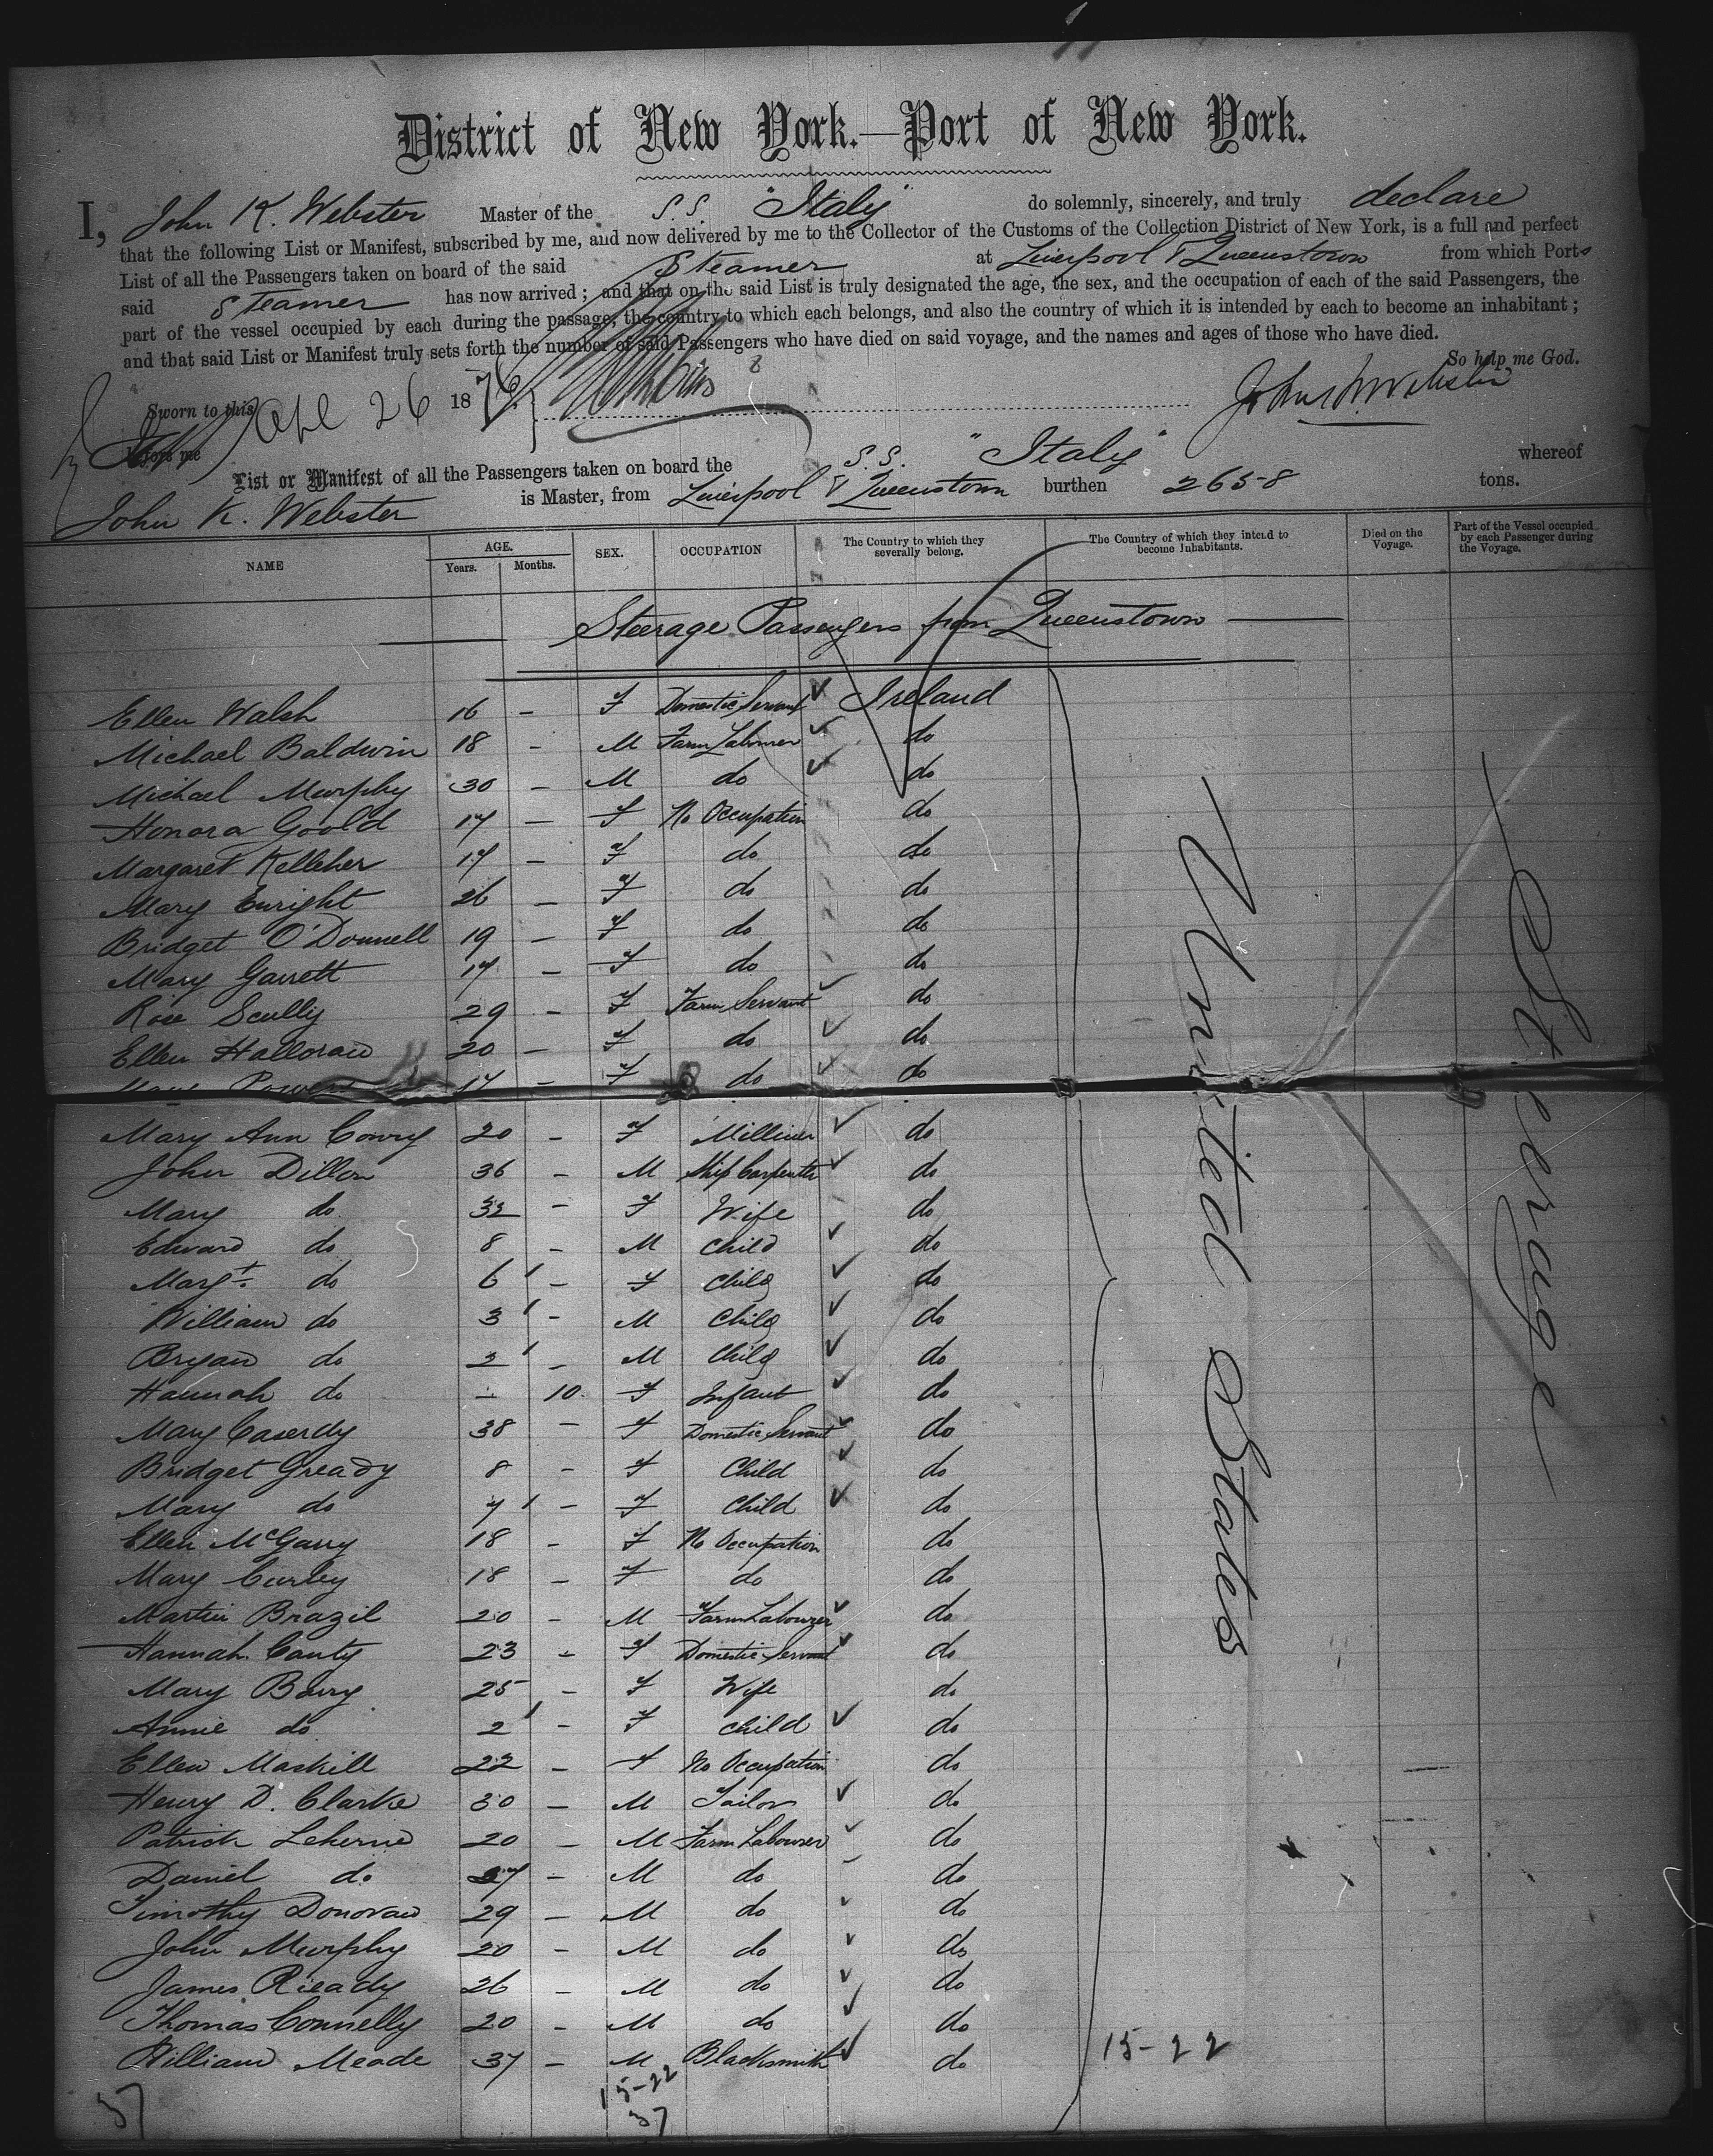 District of New York.—Port of New York.
I, John K. Webster Master of the S.S. "Italy" do solemnly, sincerely, and truly declare
that the following List or Manifest, subscribed by me, and now delivered by me to the Collector of the Customs of the Collection District of New York, is a full and perfect
List of all the Passengers taken on board of the said Steamer at Liverpool & Queenstown from which Ports
said Steamer has now arrived; and that on the said List is truly designated the age, the sex, and the occupation of each of the said Passengers, the
part of the vessel occupied by each during the passage, the country to which each belongs, and also the country of which it is intended by each to become an inhabitant;
and that said List or Manifest truly sets forth the number of said Passengers who have died on said voyage, and the names and ages of those who have died.
So help me God.
Sworn to this Apl 26 1876
before me
List or Manifest of all the Passengers taken on board the S.S. "Italy" whereof
John K. Webster is Master, from Liverpool & Queenstown burthen 2658 tons.
NAME AGE. Years. Months. SEX. OCCUPATION The Country to which they severally belong. The Country of which they intend to become Inhabitants. Died on the Voyage. Part of the Vessel occupied by each Passenger during the Voyage.
Steerage Passengers from Queenstown
Ellen Walsh 16 - F Domestic Servant Ireland
Michael Baldwin 18 - M Farm Labourer do
Michael Murphy 30 - M do do
Honora Goold 17 - F No Occupation do
Margaret Kelleher 17 - F do do
Mary Enright 26 - F do do
Bridget O'Donnell 19 - F do do
Mary Garrett 17 - F do do
Rose Scully 29 - F Farm Servant do
Ellen Halloran 20 - F do do
Mary Power 17 - F do do
Mary Ann Conry 20 - F Milliner do
John Dillon 36 - M Ship Carpenter do
Mary do 32 - F Wife do
Edward do 8 - M Child do
Margt. do 6 - F Child do
William do 3 - M Child do
Bryan do 2 - M Child do
Hannah do - 10 F Infant do
Mary Caserdy 38 - F Domestic Servant do
Bridget Gready 8 - F Child do
Mary do 7 - F Child do
Ellen McGarry 18 - F No Occupation do
Mary Curley 18 - F do do
Martin Brazil 20 - M Farm Labourer do
Hannah Canty 23 - F Domestic Servant do
Mary Barry 25 - F Wife do
Annie do 2 - F Child do
Ellen Maskill 22 - F No Occupation do
Henry D. Clarke 30 - M Tailor do
Patrick Leherne 20 - M Farm Labourer do
Daniel do - M do do
Timothy Donovan 29 - M do do
John Murphy 20 - M do do
James Ready 26 - M do do
Thomas Connelly 20 - M do do
William Meade 37 - M Blacksmith do
United States
Steerage
15-22
15-22
37
37